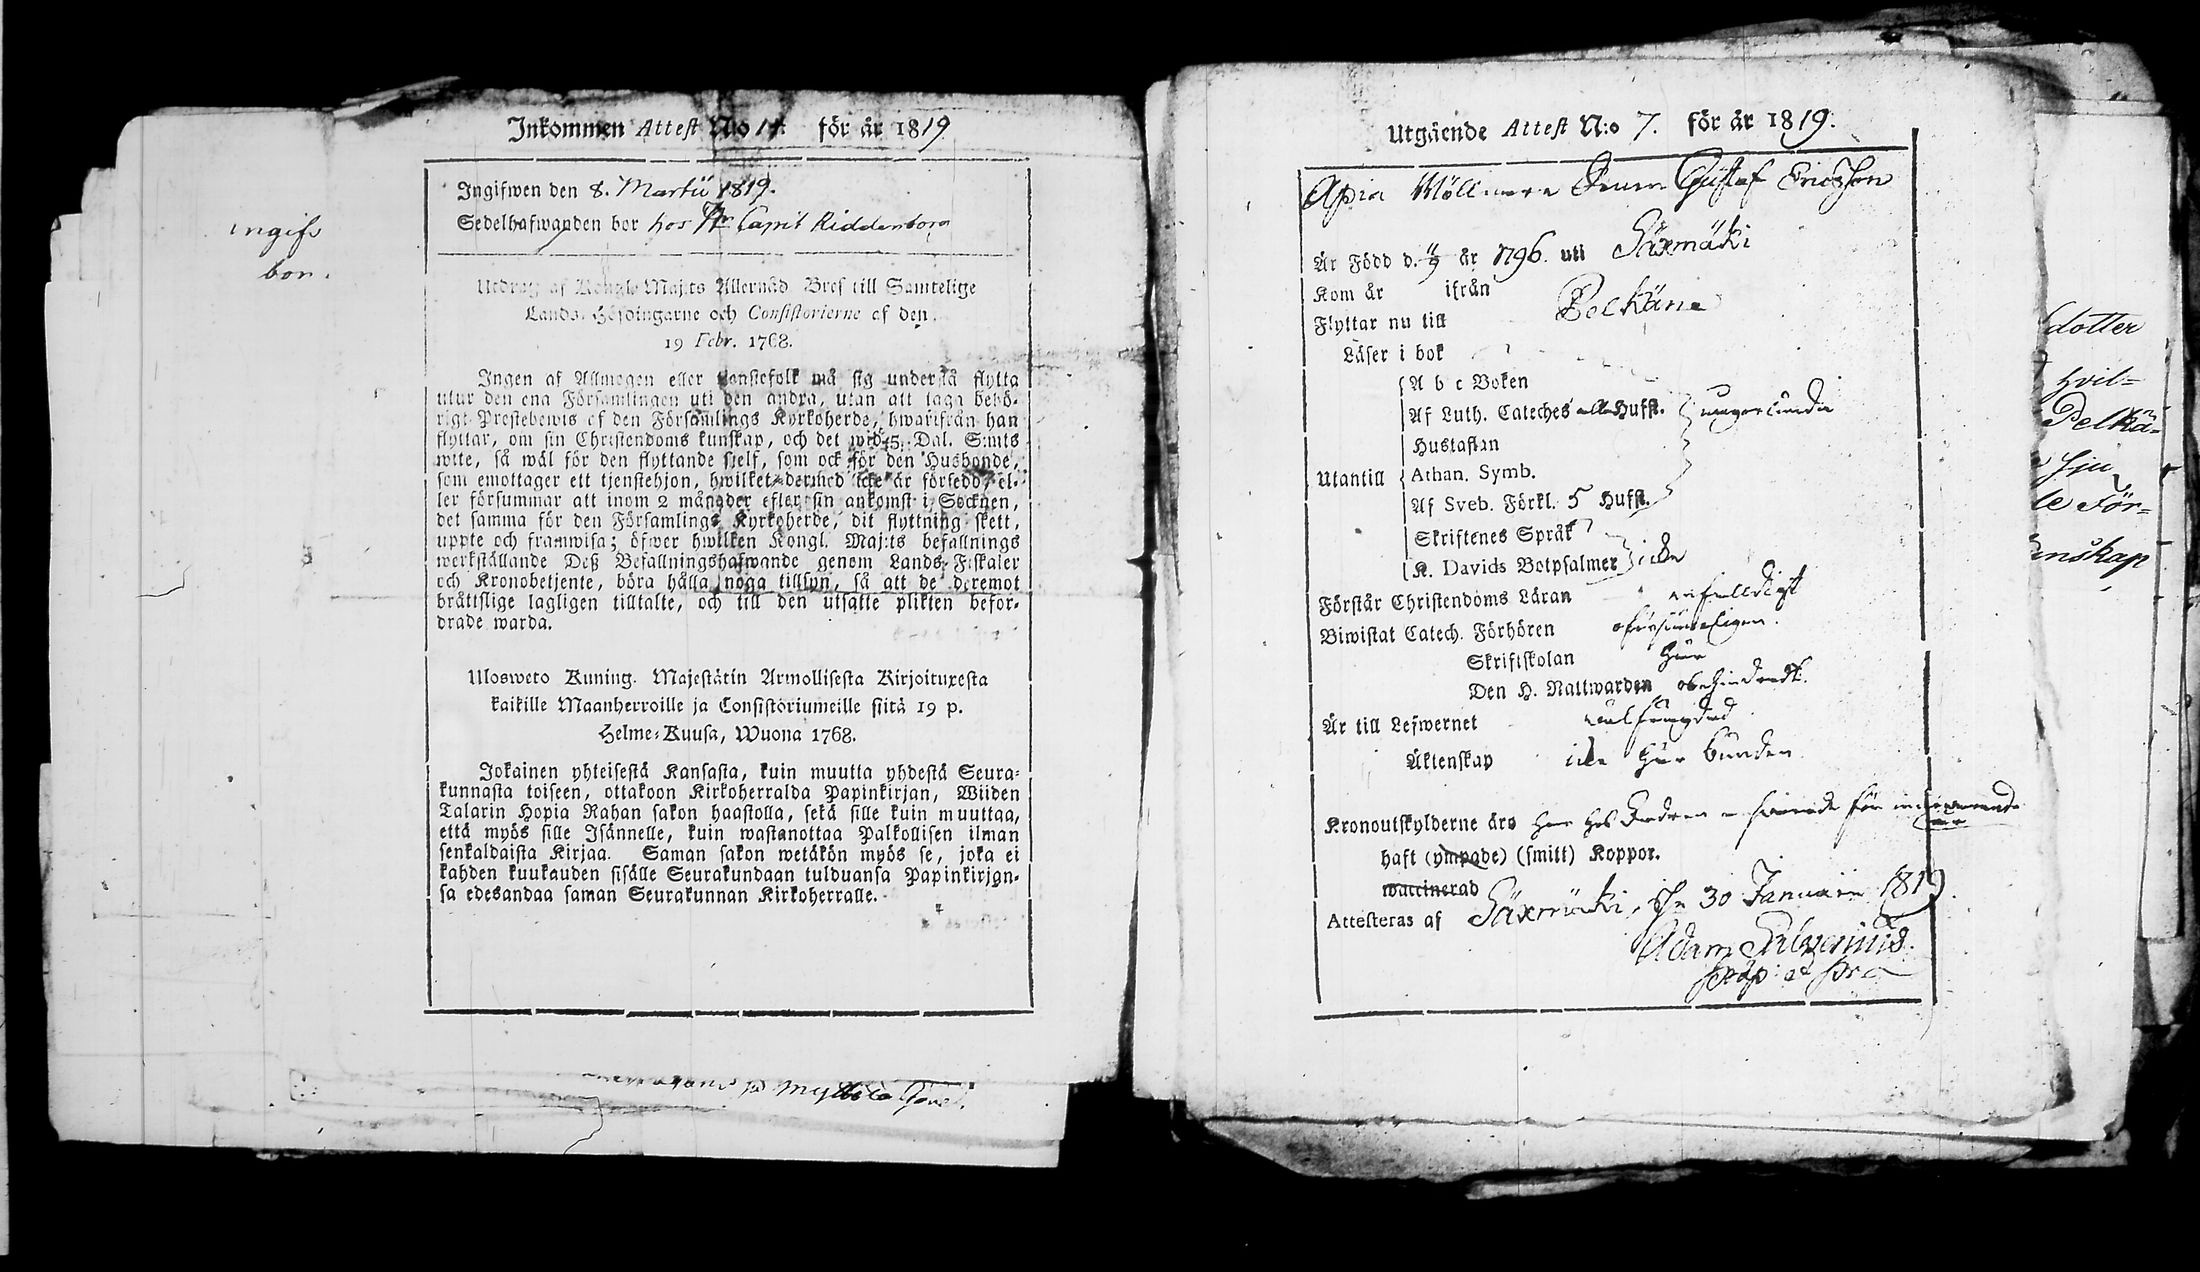 Inkommen Attest N:o 14. för år 1819
Ingifwen den 8. Martii 1819.
Sedelhafwanden bor hos Hr Capit Riddenborg
ingifv
bor.
Utdrag af Kongl. Maj:ts Allernåd. Bref till Samtelige
Lands-Höfdingarne och Consistorierne af den
19 Febr. 1768.
Ingen af Allmogen eller tjenstefolk må sig understå flytta
utur den ena Församlingen uti den andra, utan att taga behö-
rigt Prestebewis af den Församlings Kyrkoherde, hwarifrån han
flyttar, om sin Christendoms kunskap, och det wid 5. Dal. S:mts
wite, så wäl för den flyttande sjelf, som ock för den Husbonde,
som emottager ett tjenstehjon, hwilket dermed icke är försedd, el-
ler försummar att inom 2 månader efter sin ankomst i Socknen,
det samma för den Församlings Kyrkoherde, dit flyttning skett,
uppte och framwisa; öfwer hwilken Kongl. Maj:ts befallnings
werkställande Deß Befallningshafwande genom Lands-Fiskaler
och Kronobetjente, böra hålla noga tillsyn, så att de deremot
bråttslige lagligen tilltalte, och till den utsatte plikten befor-
drade warda.
Ulosweto Kuning. Majestätin Armollisesta Kirjoituxesta
kaikille Maanherroille ja Consistoriumeille siitä 19 p.
Helme-Kuusa, Wuona 1768.
Jokainen yhteisestä Kansasta, kuin muutta yhdestä Seura-
kunnasta toiseen, ottakoon Kirkoherralda Papinkirjan, Wiiden
Talarin Hopia Rahan sakon haastolla, sekä sille kuin muuttaa,
että myös sille Isännelle, kuin wastanottaa Palkollisen ilman
senkaldaista Kirjaa. Saman sakon wetäkön myös se, joka ei
kahden kuukauden sisälle Seurakundaan tulduansa Papinkirjan-
sa edesandaa saman Seurakunnan Kirkoherralle.
på Myttälä
Utgående Attest N:o 7. för år 1819.
Apia Gustaf Ericsson
Är Född d. år 1796. uti Säxmäki
Kom år ifrån
Flyttar nu till Pelkäne
Läser i bok
A b c Boken
Af Luth. Cateches alla Hufst.
Hustaflan
Utantill Athan. Symb.
Af Sveb. Förkl. 5 Hufst.
Skriftenes Språk
K. Davids Botpsalmer icke
Förstår Christendoms Läran enfalldigt
Biwistat Catech. Förhören oförsumeligen.
Skriftskolan
Den H. Nattwarden obehindradt.
Är till Lefwernet wälfrägdad
Äktenskap icke bunden
Kronoutskylderne äro för
haft (ympade) (smitt) Koppor.
waccinerad
Attesteras af Säxmäki, den 30 Januarii 1819.
Adam
dotter
hvil-
Pelkä-
sju
le För-
enskap